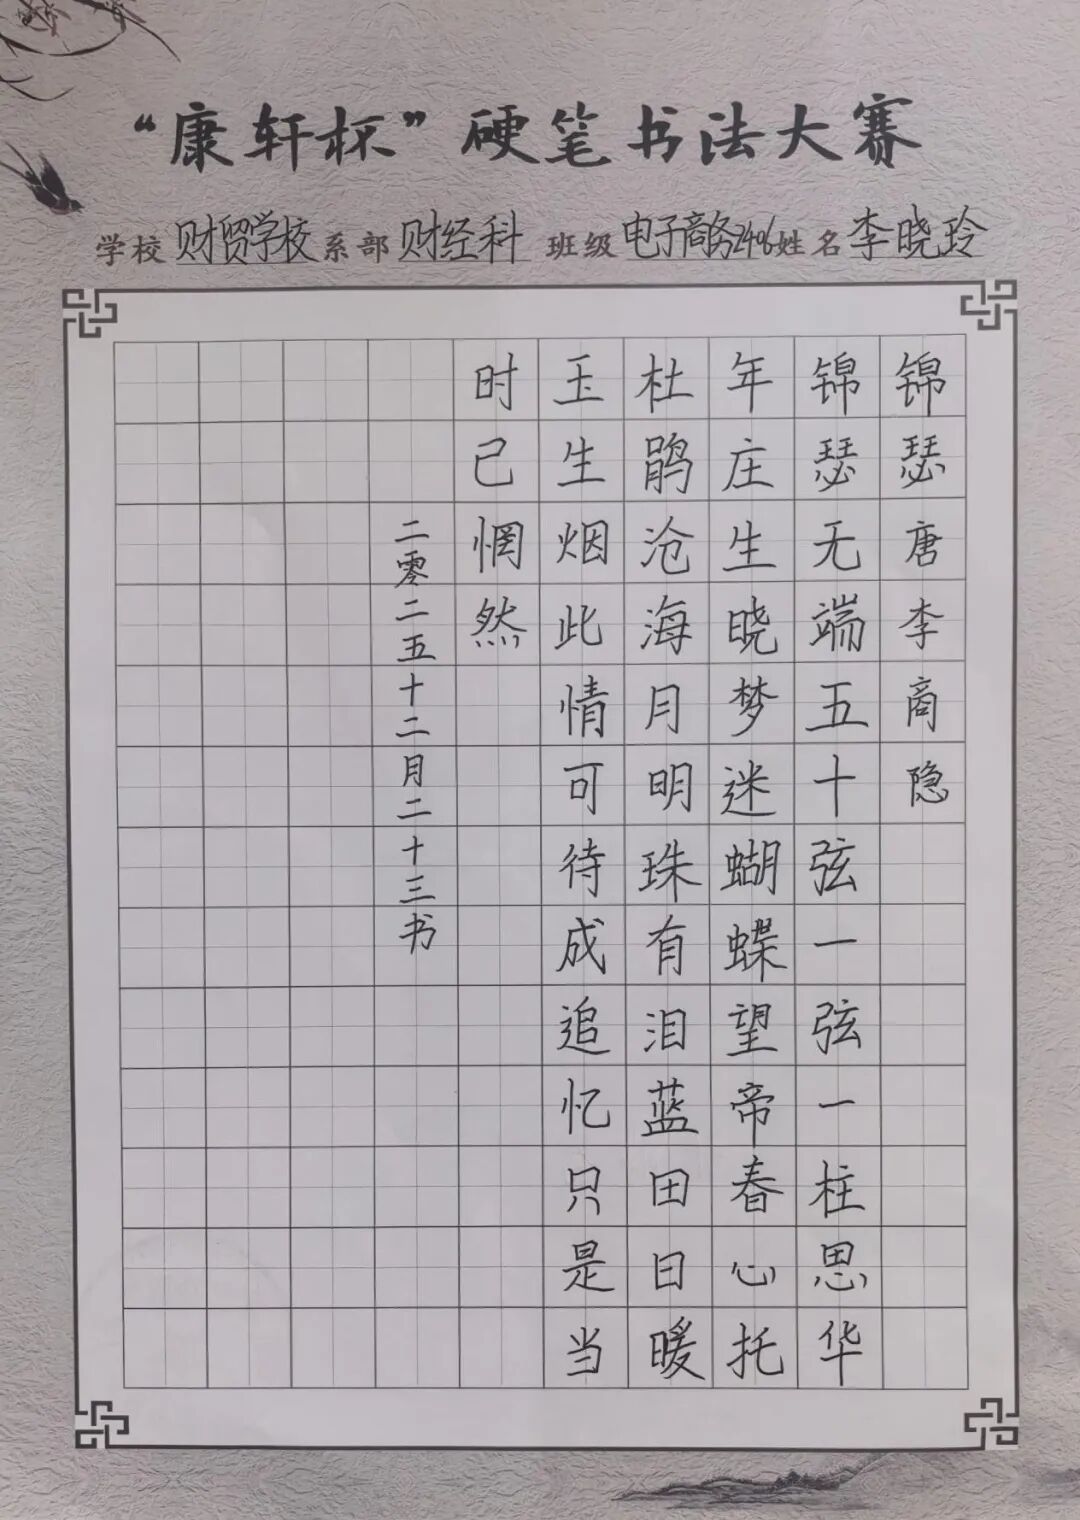 “康轩杯”硬笔书法大赛
学校 财贸学校 系部 财经科 班级 电子商务2406 姓名 李晓玲
锦瑟唐李商隐
锦瑟无端五十弦一弦一柱思华
年庄生晓梦迷蝴蝶望帝春心托
杜鹃沧海月明珠有泪蓝田日暖
玉生烟此情可待成追忆只是当
时已惘然
二零二五十二月二十三书